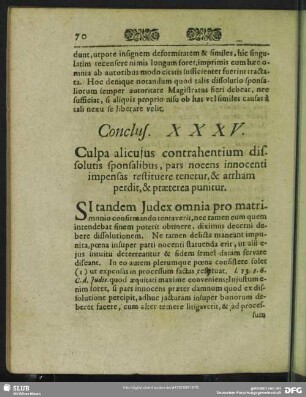 70
dunt, utpote insignem deformitatem & similes, hic singu-
latim recensere nimis longum foret, imprimis cum hæc o-
mnia ab autoribus modo citatis sufficienter fuerint tracta-
ta. Hoc denique notandum quod talis dissolutio sponsa-
liorum semper autoritate Magistratus fieri debeat, nec
sufficiat, si aliquis proprio nisu ob has vel similes causas à
tali nexu se liberare velit.
Conclus. XXXV.
Culpa alicujus contrahentium dis-
solutis sponsalibus, pars nocens innocenti
impensas restituere tenetur, & arrham
perdit, & præterea punitur.
SI tandem Judex omnia pro matri-
monio confirmando tentaverit, nec tamen eum quem
intendebat finem potuerit obtinere, diximus decerni de-
bere dissolutionem. Ne tamen delicta maneant impu-
nita, pœna insuper parti nocenti statuenda erit, ut alii e-
jus intuitu deterreantur & fidem semel datam servare
discant. In eo autem plerumque pœna consistere solet
(1) ut expensas in processum factas restituat. l. 13. §. 6.
C. d. Judic. quod æquitati maxime conveniens; Injustum e-
nim foret, si pars innocens præter damnum quod ex dis-
solutione percipit, adhuc jacturam insuper bonorum de-
beret facere, cum alter temere litigaverit, & ad proces-
sum
SLUB
Wir führen Wissen.